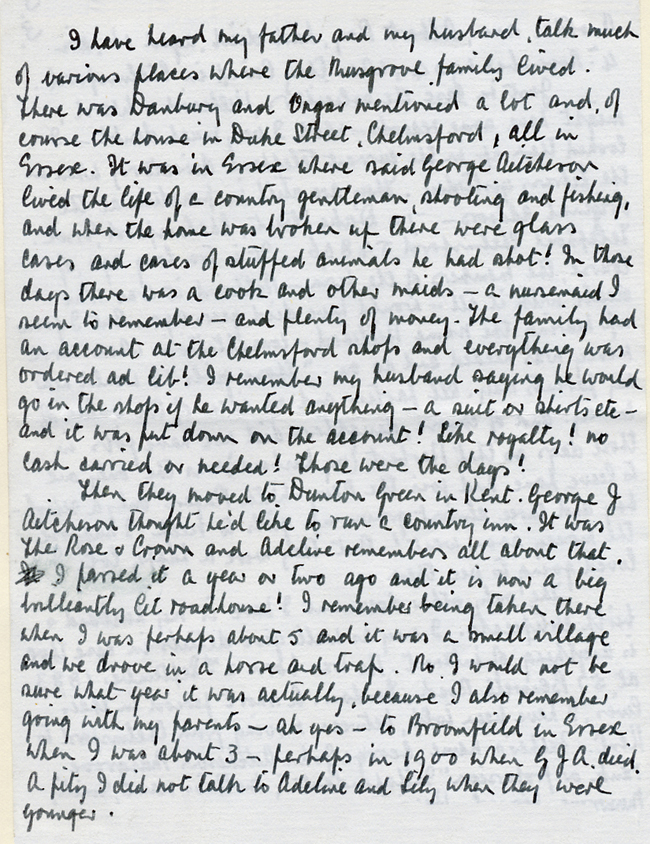 I have heard my father and my husband, talk much
of various places where the Musgrove family lived.
There was Danbury and Ongar mentioned a lot and, of
course the house in Duke Street, Chelmsford, all in
Essex. It was in Essex where said George Aitcheson
lived the life of a country gentleman, shooting and fishing,
and when the home was broken up there were glass
cases and cases of stuffed animals he had shot! In those
days there was a cook and other maids – a nursemaid I
seem to remember – and plenty of money. The family had
an account at the Chelmsford shops and everything was
ordered ad lib! I remember my husband saying he would
go in the shops if he wanted anything – a suit or shirts etc –
and it was put down on the account! Like royalty! no
cash carried or needed! Those were the days!
Then they moved to Dunton Green in Kent. George J
Aitcheson thought he'd like to run a country inn. It was
the Rose & Crown and Adeline remembers all about that.
I passed it a year or two ago and it is now a big
brilliantly lit roadhouse! I remember being taken there
when I was perhaps about 5 and it was a small village
and we drove in a horse and trap. No I would not be
sure what year it was actually, because I also remember
going with my parents – ah yes – to Broomfield in Essex
when I was about 3 – perhaps in 1900 when G J A. died.
A pity I did not talk to Adeline and Lily when they were
younger.